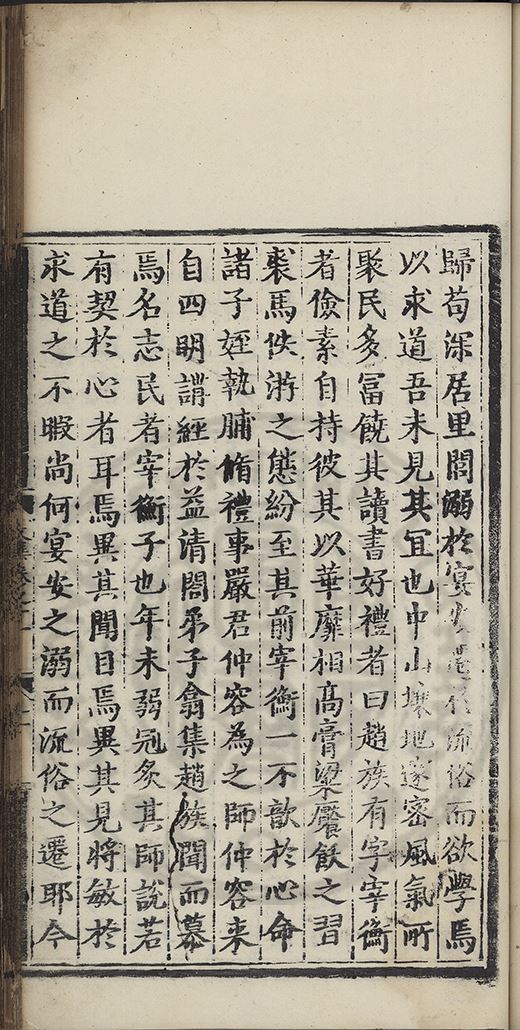 歸苟深居里閭溺於宴安遷於流俗而欲學焉
以求道吾未見其冝也中山壤地邃密風氣所
聚民多冨饒其讀書好禮者曰趙族有字宰衡
者儉素自持彼其以華靡相髙膏粱饜飫之習
裘馬佚游之態紛至其前宰衡一不歆於心命
諸子姪執脯脩禮事嚴君仲容為之師仲容来
自四明講經於益清閤弟子翕集趙族聞而慕
焉名志民者宰衡子也年未弱冠炙其師說若
有契於心者耳焉異其聞目焉異其見將敏於
求道之不暇尚何宴安之溺而流俗之遷耶今